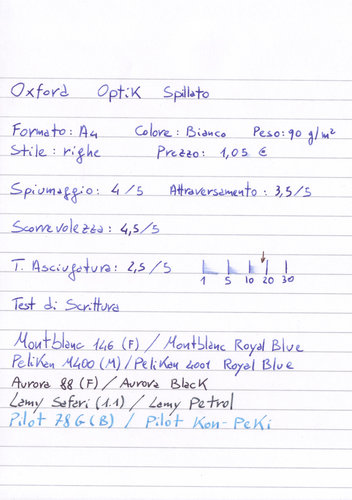 Oxford Optik Spillato
Formato: A4 Colore: Bianco Peso: 90 g/m²
Stile: righe Prezzo: 1,05 €
Spiumaggio: 4/5 Attraversamento: 3,5/5
Scorrevolezza: 4,5/5
T. Asciugatura: 2,5/5 1 5 10 20 30
Test di Scrittura
Montblanc 146 (F) / Montblanc Royal Blue
Pelikan M400 (M) / Pelikan 4001 Royal Blue
Aurora 88 (F) / Aurora Black
Lamy Safari (1.1) / Lamy Petrol
Pilot 78G (B) / Pilot Kon-Peki